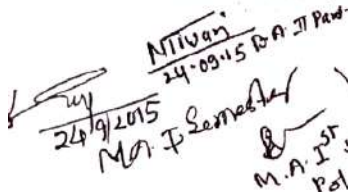 NTiwari
24-09-15 B.A. II Part-
24/9/2015
M.A. I Semester
M.A. Ist
Pol